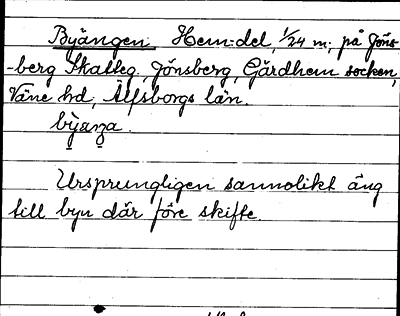 Byängen. Hem:del, 1/24 m; på Jöns-
-berg Skatteg, Jönsberg, Gärdhem socken,
Väne hd, Älfsborgs län.
Ursprungligen sannolikt äng
till byn där före skifte.